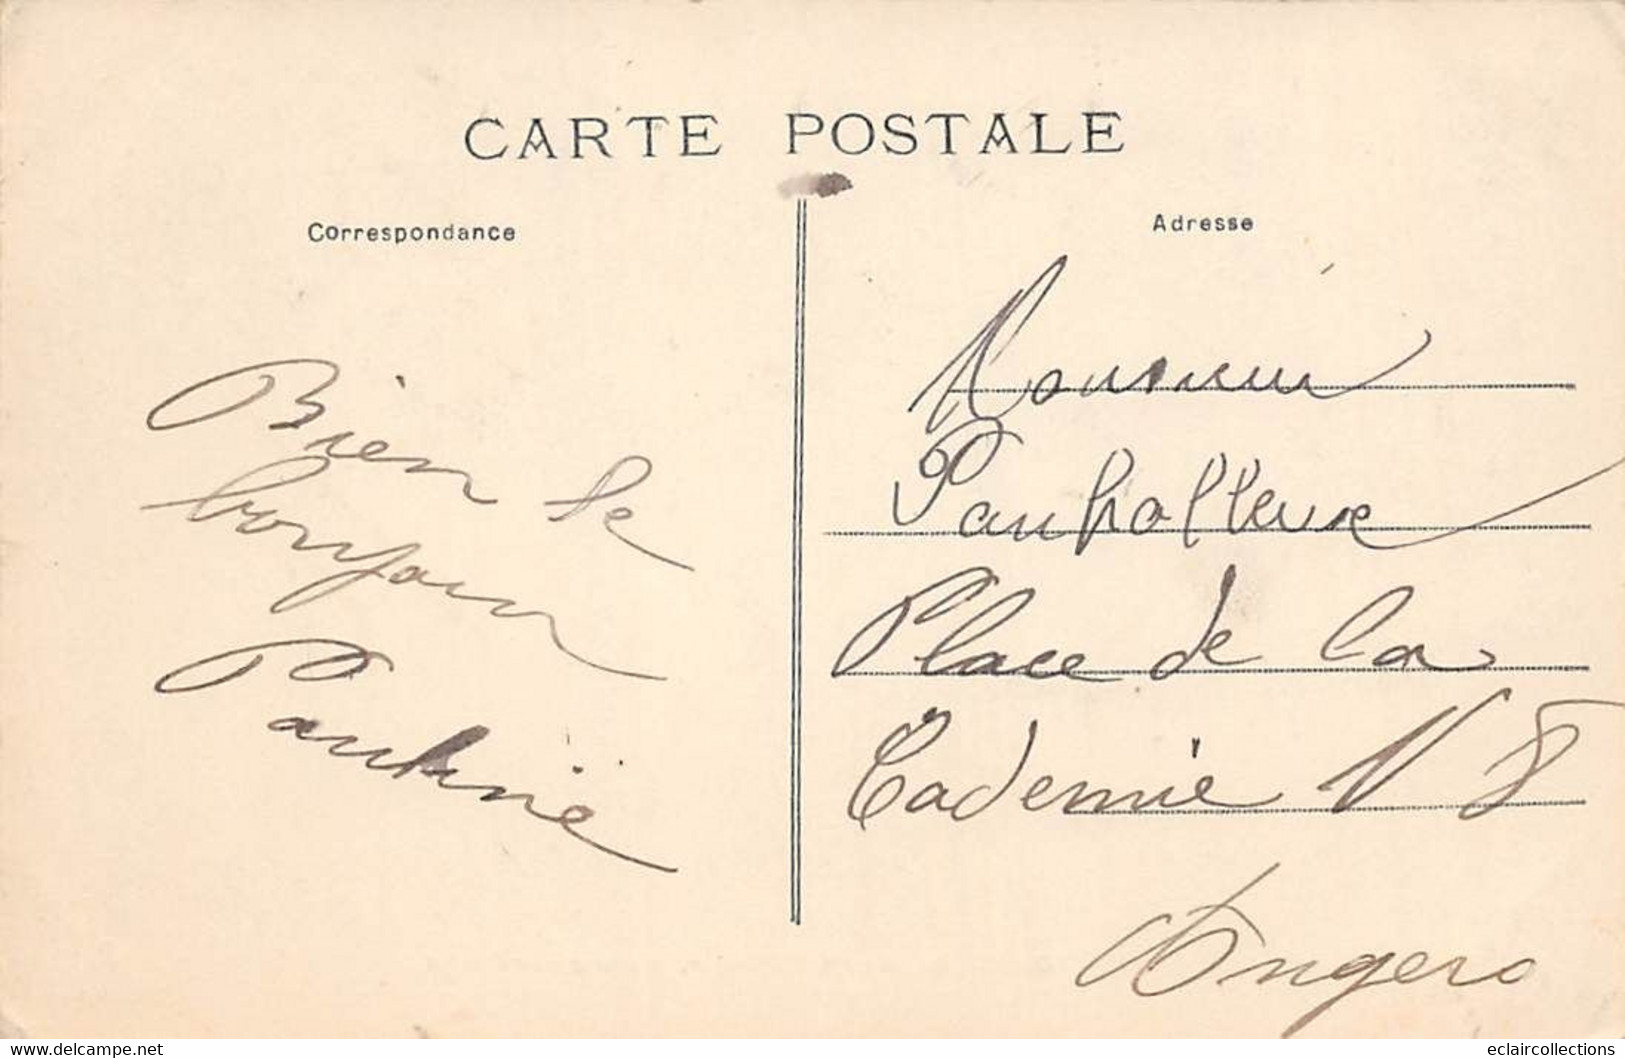 CARTE POSTALE
Correspondance
Adresse
Bien le
bonjour
Pauline
Monsieur
Place de la
Cademie N 8
Angers
delcampe.net
eclaircollections